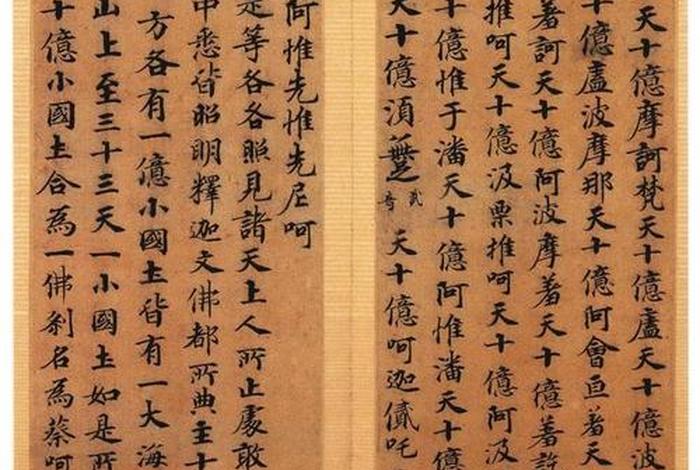 天十億摩訶梵天十億盧天十億波
十億盧波摩那天十億阿會亘著天
著訶天十億阿波摩著天十億著訶
推呵天十億汲栗推呵天十億阿汲
十億惟于潘天十億阿惟潘天十億
天十億須𭄿武音天十億呵迦儐吒
阿惟先惟先尼呵
是等各各照見諸天上人所止處敢
中悉皆昭明釋迦文佛都所典主十
方各有一億小國土皆有一大海
山上至三十三天一小國土如是所
十億小國土合為一佛剎名為蔡呵